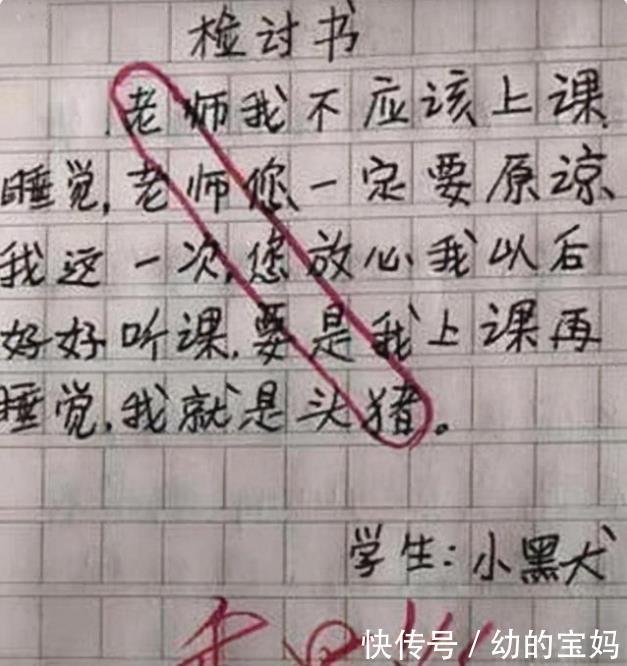 检讨书
老师我不应该上课
睡觉,老师您一定要原谅
我这一次,您放心我以后
好好听课,要是我上课再
睡觉,我就是头猪。
学生:小黑犬
快传号/幼的宝妈